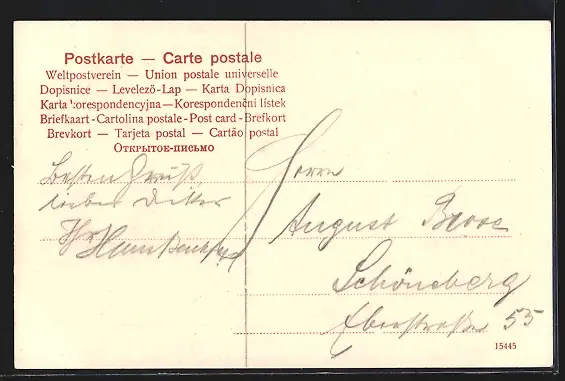 Postkarte — Carte postale
Weltpostverein — Union postale universelle
Dopisnice — Levelező-Lap — Karta Dopisnica
Karta korespondencyjna — Korespondenční lístek
Briefkaart - Cartolina postale - Post card - Brefkort
Brevkort — Tarjeta postal — Cartão postal
Открытое-письмо
besten Gruß
lieber
Herrn
August
Schöneberg
Eberstraße 55
15445